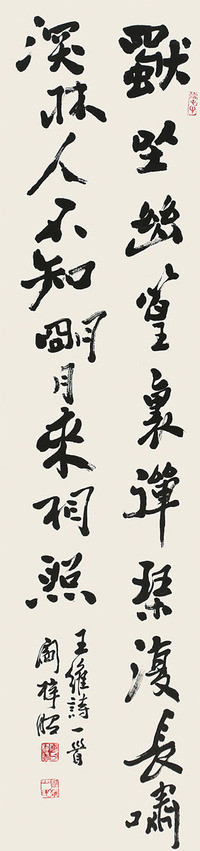 獨坐幽篁裏彈琴復長嘯
深林人不知朙月來相照
王維詩一首
閻梓昭